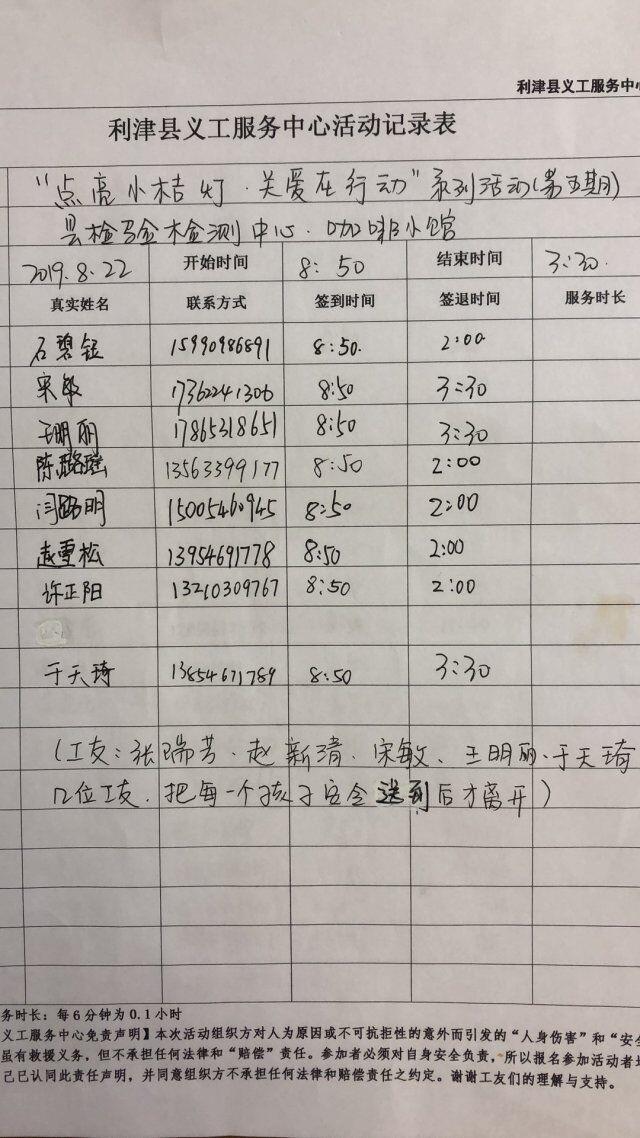 利津县义工服务中心
利津县义工服务中心活动记录表
“点亮小桔灯·关爱在行动”系列活动(第五期)
县检验检测中心·咖啡小馆
2019.8.22 开始时间 8:50 结束时间 3:30
真实姓名 联系方式 签到时间 签退时间 服务时长
石碧钰 15990986891 8:50 2:00
宋敏 17362241306 8:50 3:30
王明丽 17865318651 8:50 3:30
陈璐瑶 13563399177 8:50 2:00
闫明 15005460945 8:50 2:00
赵雪松 13954691778 8:50 2:00
许正阳 13210309767 8:50 2:00
于天琦 13854671789 8:50 3:30
(工友:张瑞芳·赵新清·宋敏、王明丽·于天琦
几位工友·把每一个孩子安全送到后才离开)
务时长:每6分钟为0.1小时
义工服务中心免责声明】本次活动组织方对人为原因或不可抗拒性的意外而引发的“人身伤害”和“安全
虽有救援义务,但不承担任何法律和“赔偿”责任。参加者必须对自身安全负责,所以报名参加活动者均
己已认同此责任声明,并同意组织方不承担任何法律和赔偿责任之约定。谢谢工友们的理解与支持。